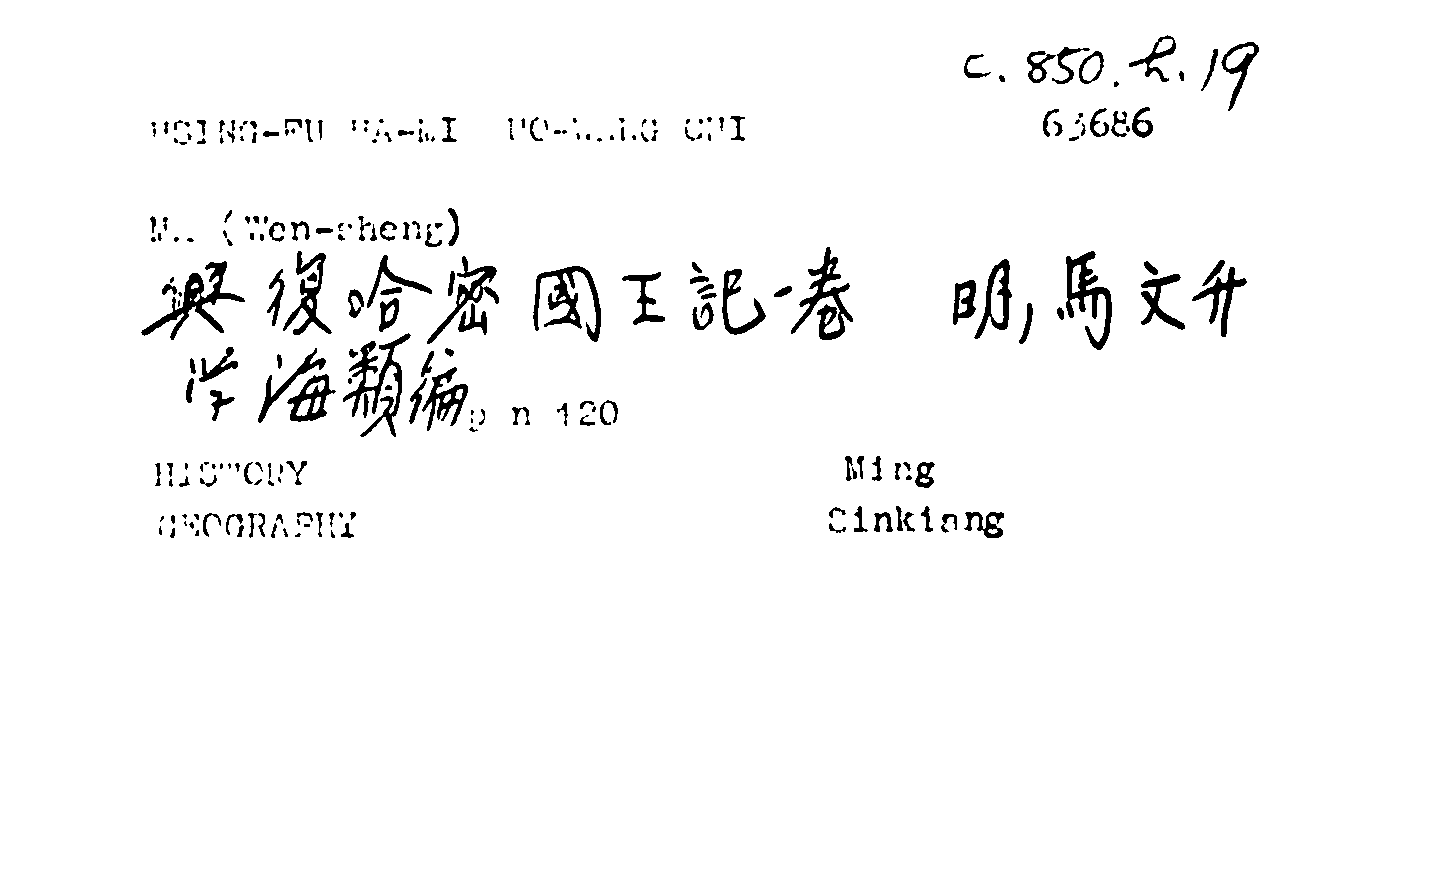 C. 850. h. 19
HSING-FU HA-MI KUO-WANG CHI 63686
Ma (Wen-sheng)
興復哈密國王記一卷 明,馬文升
学海類编 p n 120
HISTORY Ming
GEOGRAPHY Sinkiang